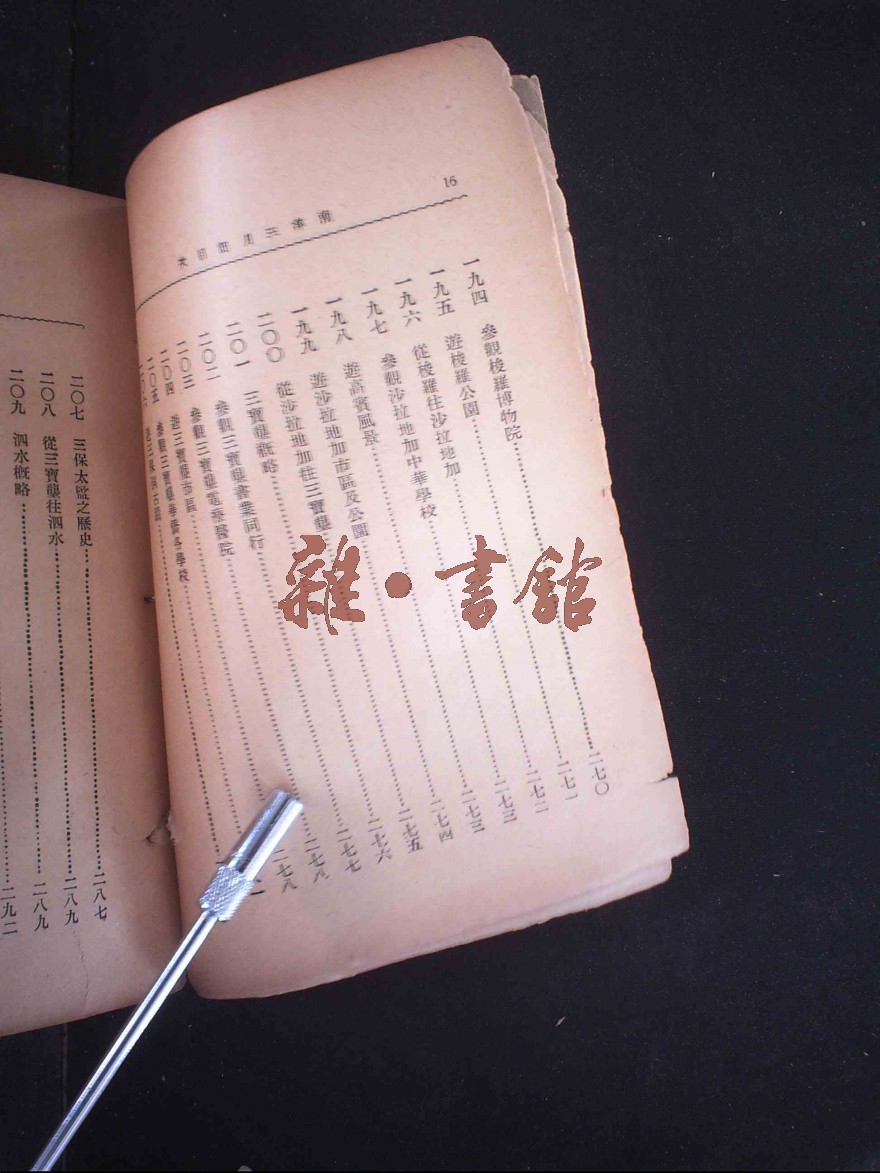 16
南洋三月記目次
一九四 參觀梭羅博物院……二七〇
一九五 遊梭羅公園……二七一
一九六 從梭羅往沙拉地加……二七二
一九七 參觀沙拉地加中華學校……二七三
一九八 遊高賓風景……二七三
一九九 遊沙拉地加市區及公園……二七四
二〇〇 從沙拉地加往三寶壟……二七五
二〇一 三寶壟概略……二七六
二〇二 參觀三寶壟書業同行……二七七
二〇三 參觀三寶壟電療醫院……二七八
二〇四 遊三寶壟市區……二七八
二〇五 參觀三寶壟華僑各學校……
二〇六 遊三保洞古蹟……
二〇七 三保太監之歷史……二八七
二〇八 從三寶壟往泗水……二八九
二〇九 泗水概略……二八九
二九二
雜・書館